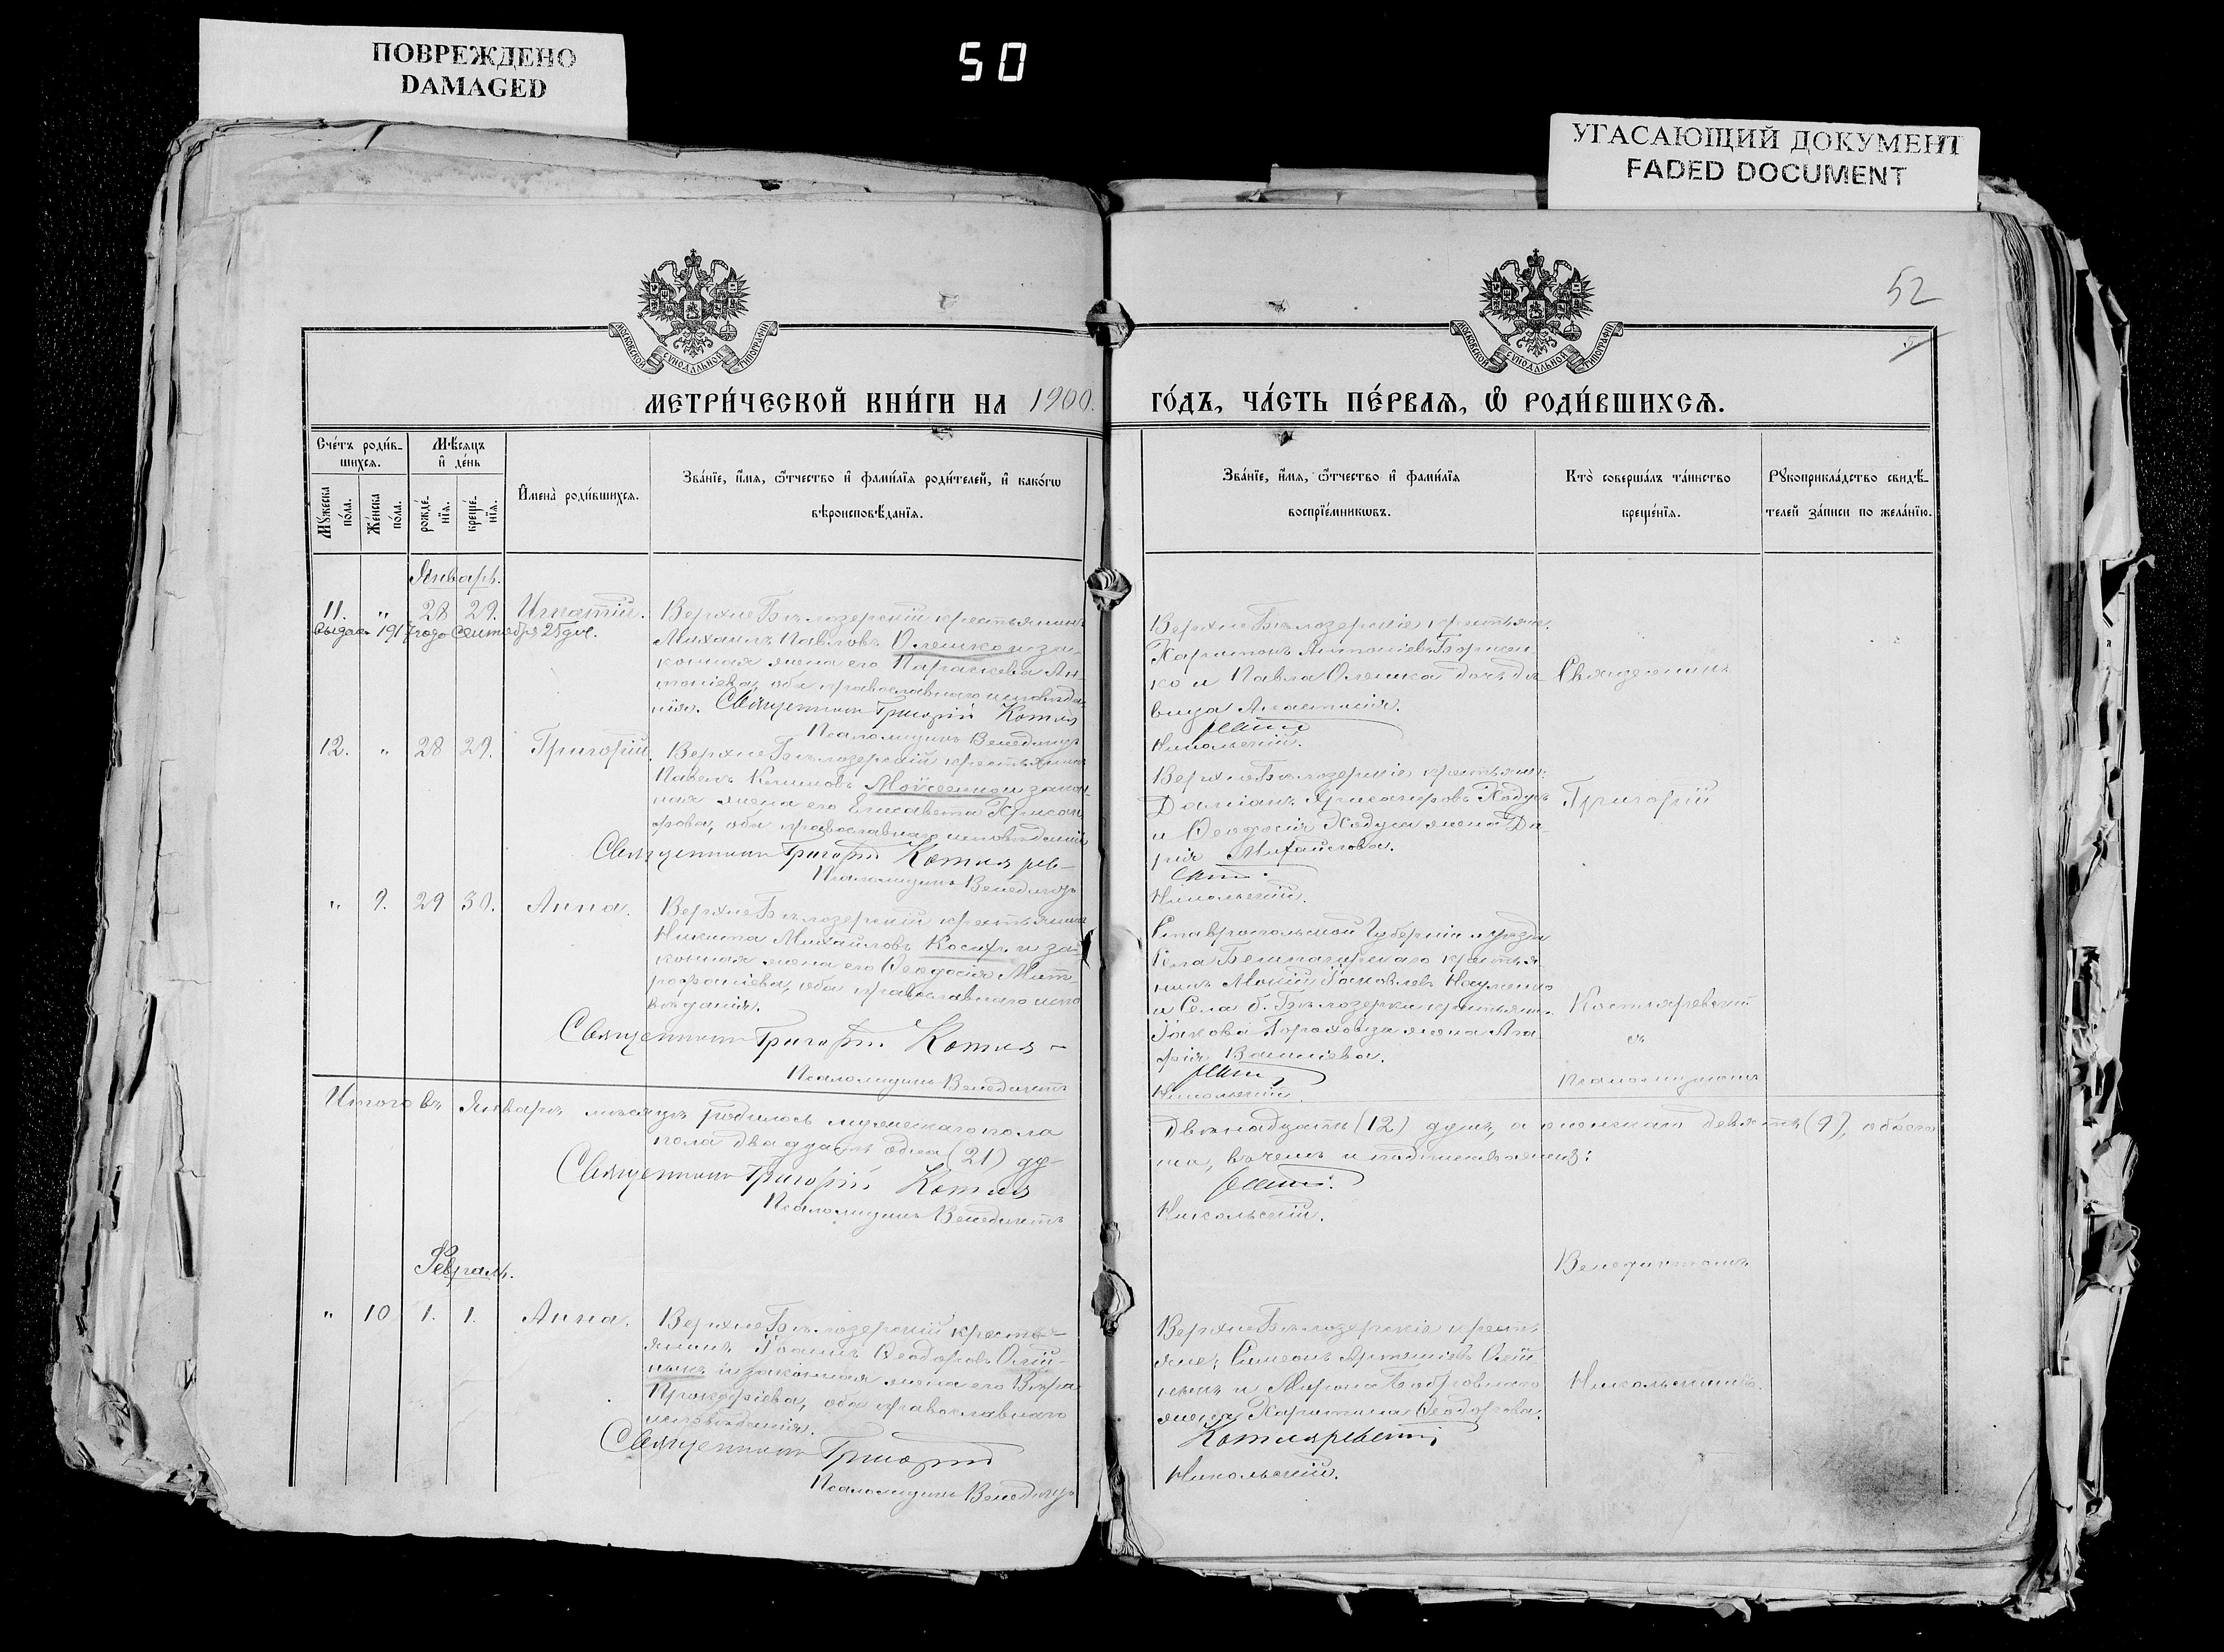 ПОВРЕЖДЕНО
DAMAGED
50
УГАСАЮЩИЙ ДОКУМЕНТ
FADED DOCUMENT
52
МОСКОВСКОЙ СѴНОДАЛЬНОЙ ТИПОГРАФІИ
МОСКОВСКОЙ СѴНОДАЛЬНОЙ ТИПОГРАФІИ
МЕТРИ́ЧЕСКОЙ КНИ́ГИ НА 1900.
ГО́ДЪ, ЧА́СТЬ ПЕ́РВАѦ, Ѡ РОДИ́ВШИХСѦ.
Сче́тъ роди́в-
шихсѧ.
Мѣ́сѧцъ
и҆ де́нь
Мꙋ́жеска
по́ла.
Же́нска
по́ла.
рожде́-
нїѧ.
креще́-
нїѧ.
И҆мена̀ роди́вшихсѧ.
Зва́нїе, и҆́мѧ, ѻ҆́тчество и҆ фами́лїѧ роди́телей, и҆ како́гѡ
вѣроисповѣ́данїѧ.
Зва́нїе, и҆́мѧ, ѻ҆́тчество и҆ фами́лїѧ
воспрїе́мникѡвъ.
Кто̀ соверша́лъ та́инство
креще́нїѧ.
Рꙋкоприкла́дство свидѣ́-
телей за́писи по жела́нїю.
Январь.
11. " 28 29. Игнатій.
Выдан 1917 года Сентября 25 дня.
Верхне Бѣлозерскій крестьянинъ
Михаилъ Павловъ Олешко и за-
конная жена его Параскева Ан-
тоніева, оба православнаго исповѣда-
нія. Священникъ Григорій Котля
Псаломщикъ Венедиктъ
Верхне Бѣлозерскіе крестьяне:
Харитонъ Антоніевъ Борисен
ко и Павла Олешка дочь дѣ
вица Анастасія.
ревскій
Никольскій.
Священникъ
12. " 28 29. Григорій.
Верхне Бѣлозерскій крестьянинъ
Павелъ Моѵсеенко и закон-
ная жена его Елисавета Хрисан
фова, оба православнаго исповѣданія
Священникъ Григорій Котлярев-
Псаломщикъ Венедиктъ
Верхне Бѣлозерскіе крестьяне:
Даміанъ Хрисанфовъ
и жена Да-
рія Михайлова.
скій.
Никольскій.
Григорій
" 9. 29 30. Анна.
Верхне Бѣлозерскій крестьянинъ
Никита Михайловъ и за-
конная жена его Ѳеодосія Мит-
рофаніева, оба православнаго испо
вѣданія.
Священникъ Григорій Котля-
Псаломщикъ Венедиктъ
Ставропольской Губерніи и уѣзда
Села крестья
нинъ Іаковлевъ Науменко
и Села б. Бѣлозерки крестьянина
Іакова жена Ага
фія Василіева.
ревскій
Никольскій.
Котляревскій
съ
Псаломщикомъ
Итого въ Январѣ мѣсяцѣ родилось мужескаго пола
Двѣнадцать (12) душъ, а женскаго девять (9), обоего
пола двадцать одна (21) ду-
ша, въ чемъ и подписываемся:
Священникъ Григорій Котля
ревскій.
Псаломщикъ Венедиктъ
Никольскій.
Венедиктомъ
Февраль.
" 10 1. 1. Анна.
Верхне Бѣлозерскій кресть-
янинъ Іоаннъ Ѳеодоровъ Олій-
никъ и законная жена его Вѣра
Прокофіева, оба православнаго
исповѣданія.
Священникъ Григорій
Псаломщикъ Венедиктъ
Верхне Бѣлозерскіе кресть
яне: Симеонъ Артеміевъ Олій
никъ и Мирона
жена Харитина Ѳеодорова.
Котляревскій
Никольскій.
Никольскимъ.